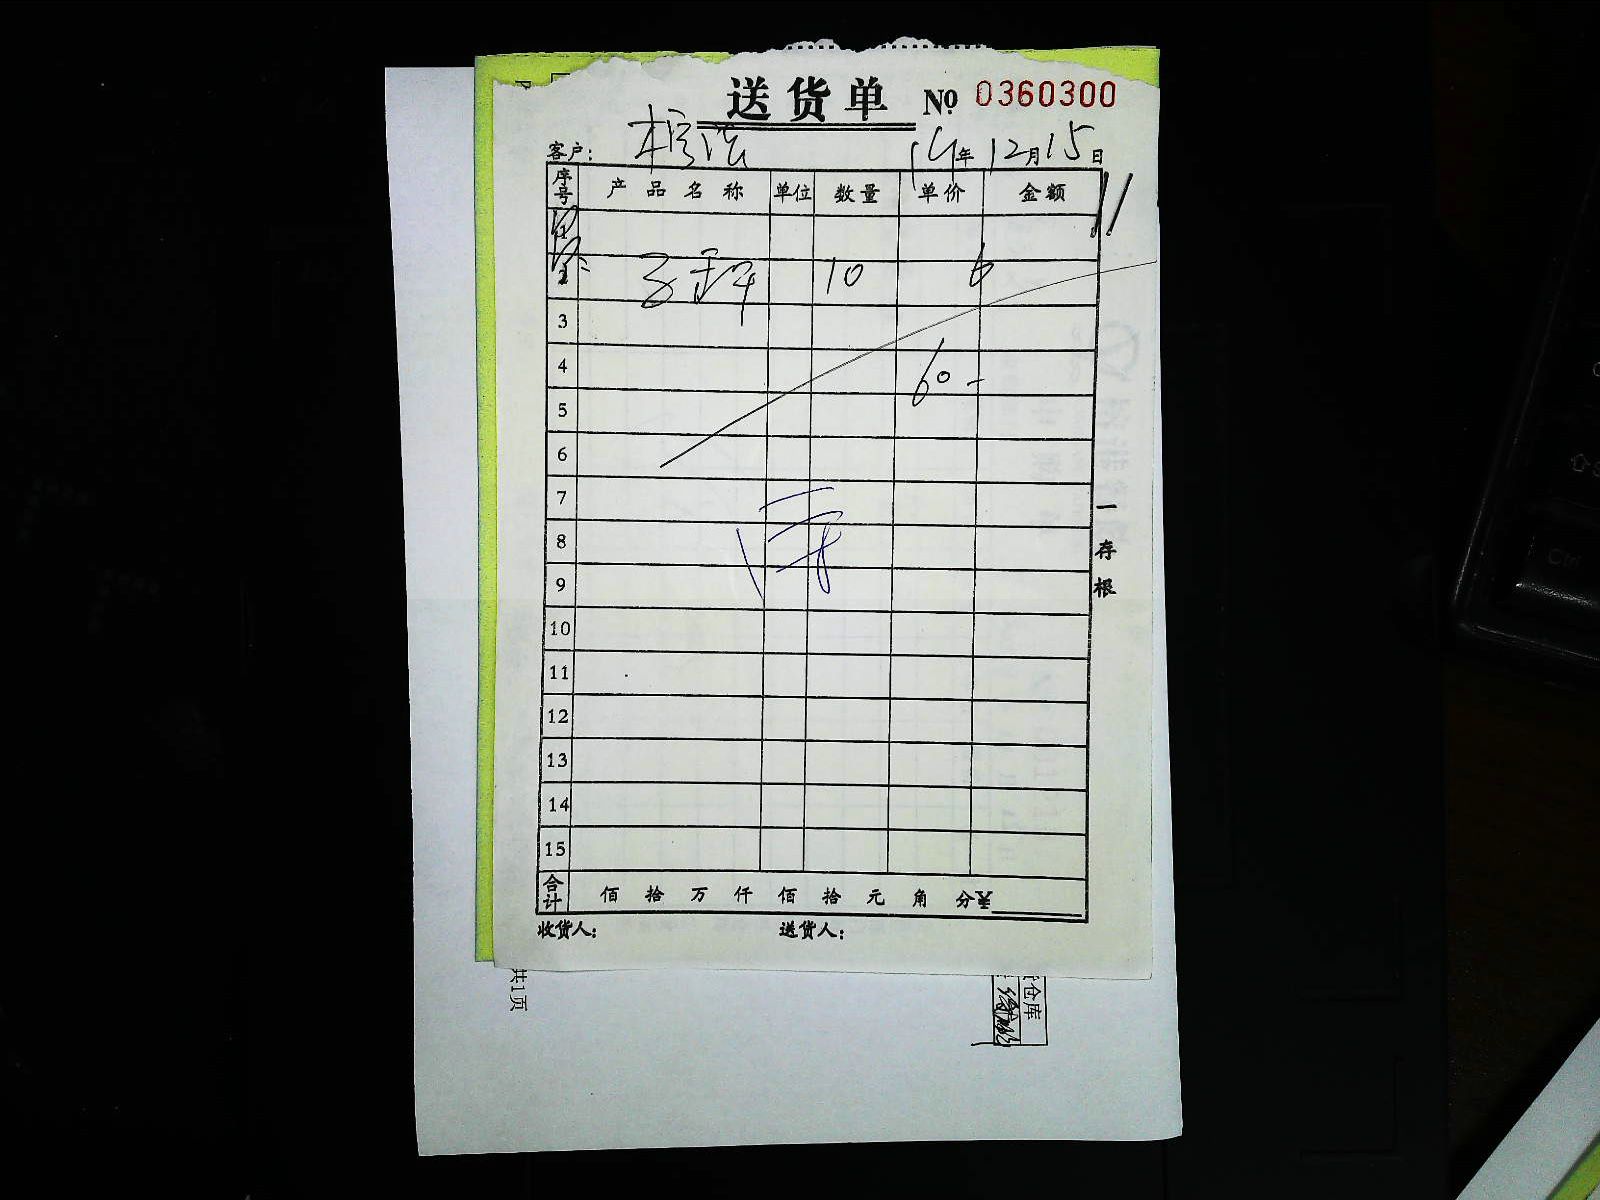 送货单 № 0360300
客户: 14年12月15日
序号 产品名称 单位 数量 单价 金额
1
2 10 6
3
4 60-
5
6
7
8
9
10
11
12
13
14
15
合计 佰 拾 万 仟 佰 拾 元 角 分¥
收货人: 送货人:
一存根
共1页
仓库
Ctrl